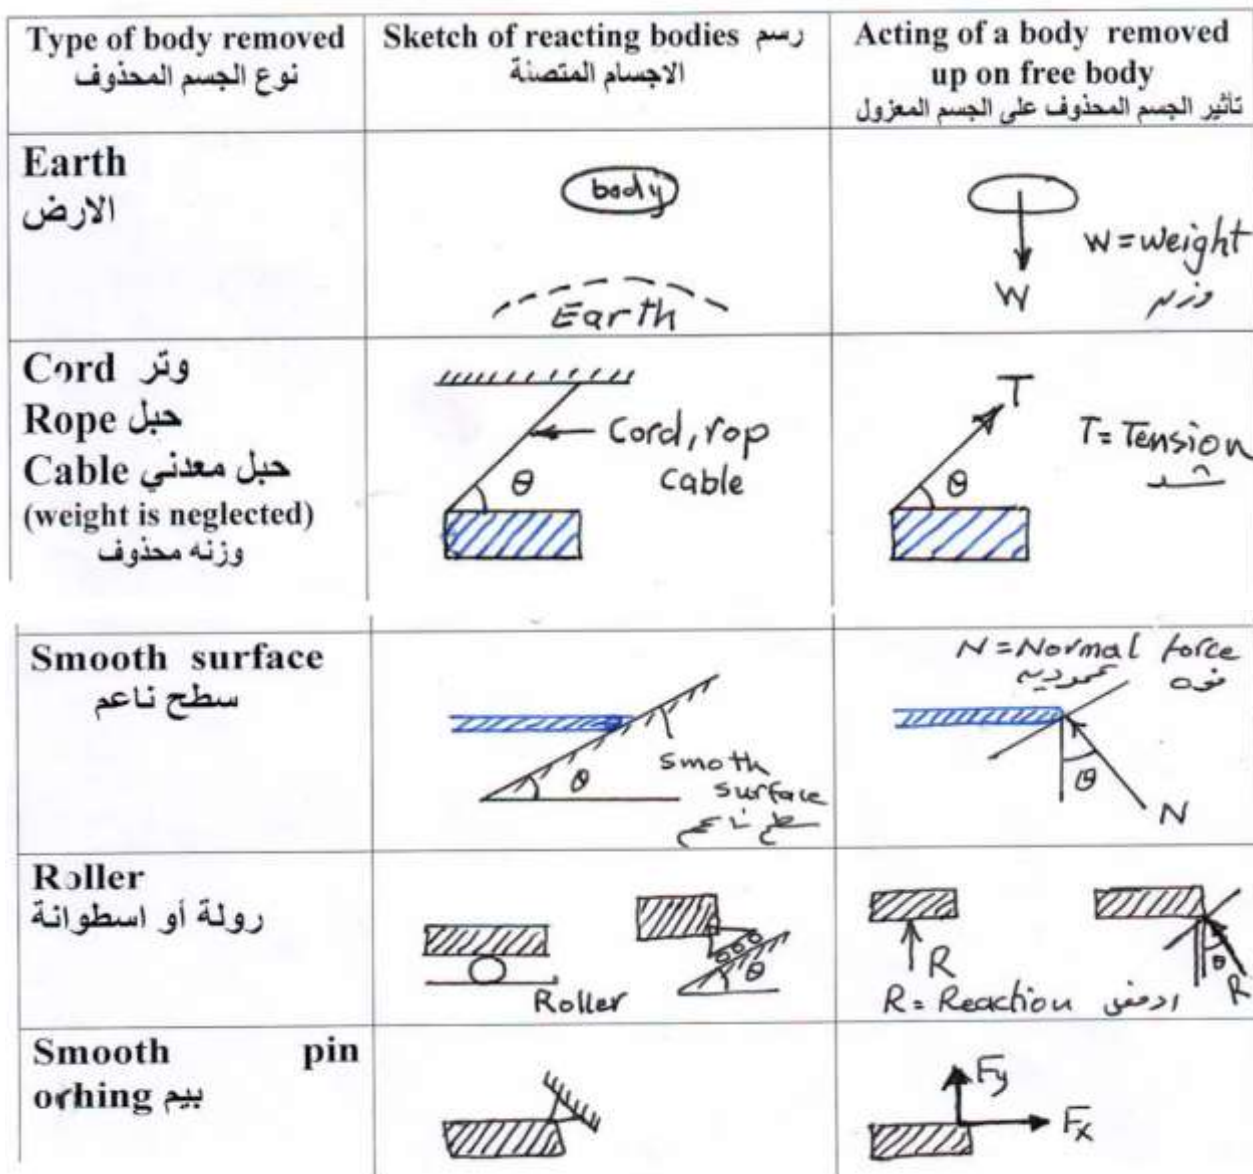 Type of body removed
نوع الجسم المحذوف
Sketch of reacting bodies رسم
الاجسام المتصلة
Acting of a body removed
up on free body
تأثير الجسم المحذوف على الجسم المعزول
Earth
الارض
body
Earth
W = weight
وزن
W
Cord وتر
Rope حبل
Cable حبل معدني
(weight is neglected)
وزنه محذوف
Cord, rop
cable
θ
T
T = Tension
شد
θ
Smooth surface
سطح ناعم
smoth
surface
سطح ناعم
θ
N = Normal force
قوه عموديه
θ
N
Roller
رولة أو اسطوانة
Roller
θ
R
R = Reaction
θ
R
Smooth pin
orhing بيم
Fy
Fx